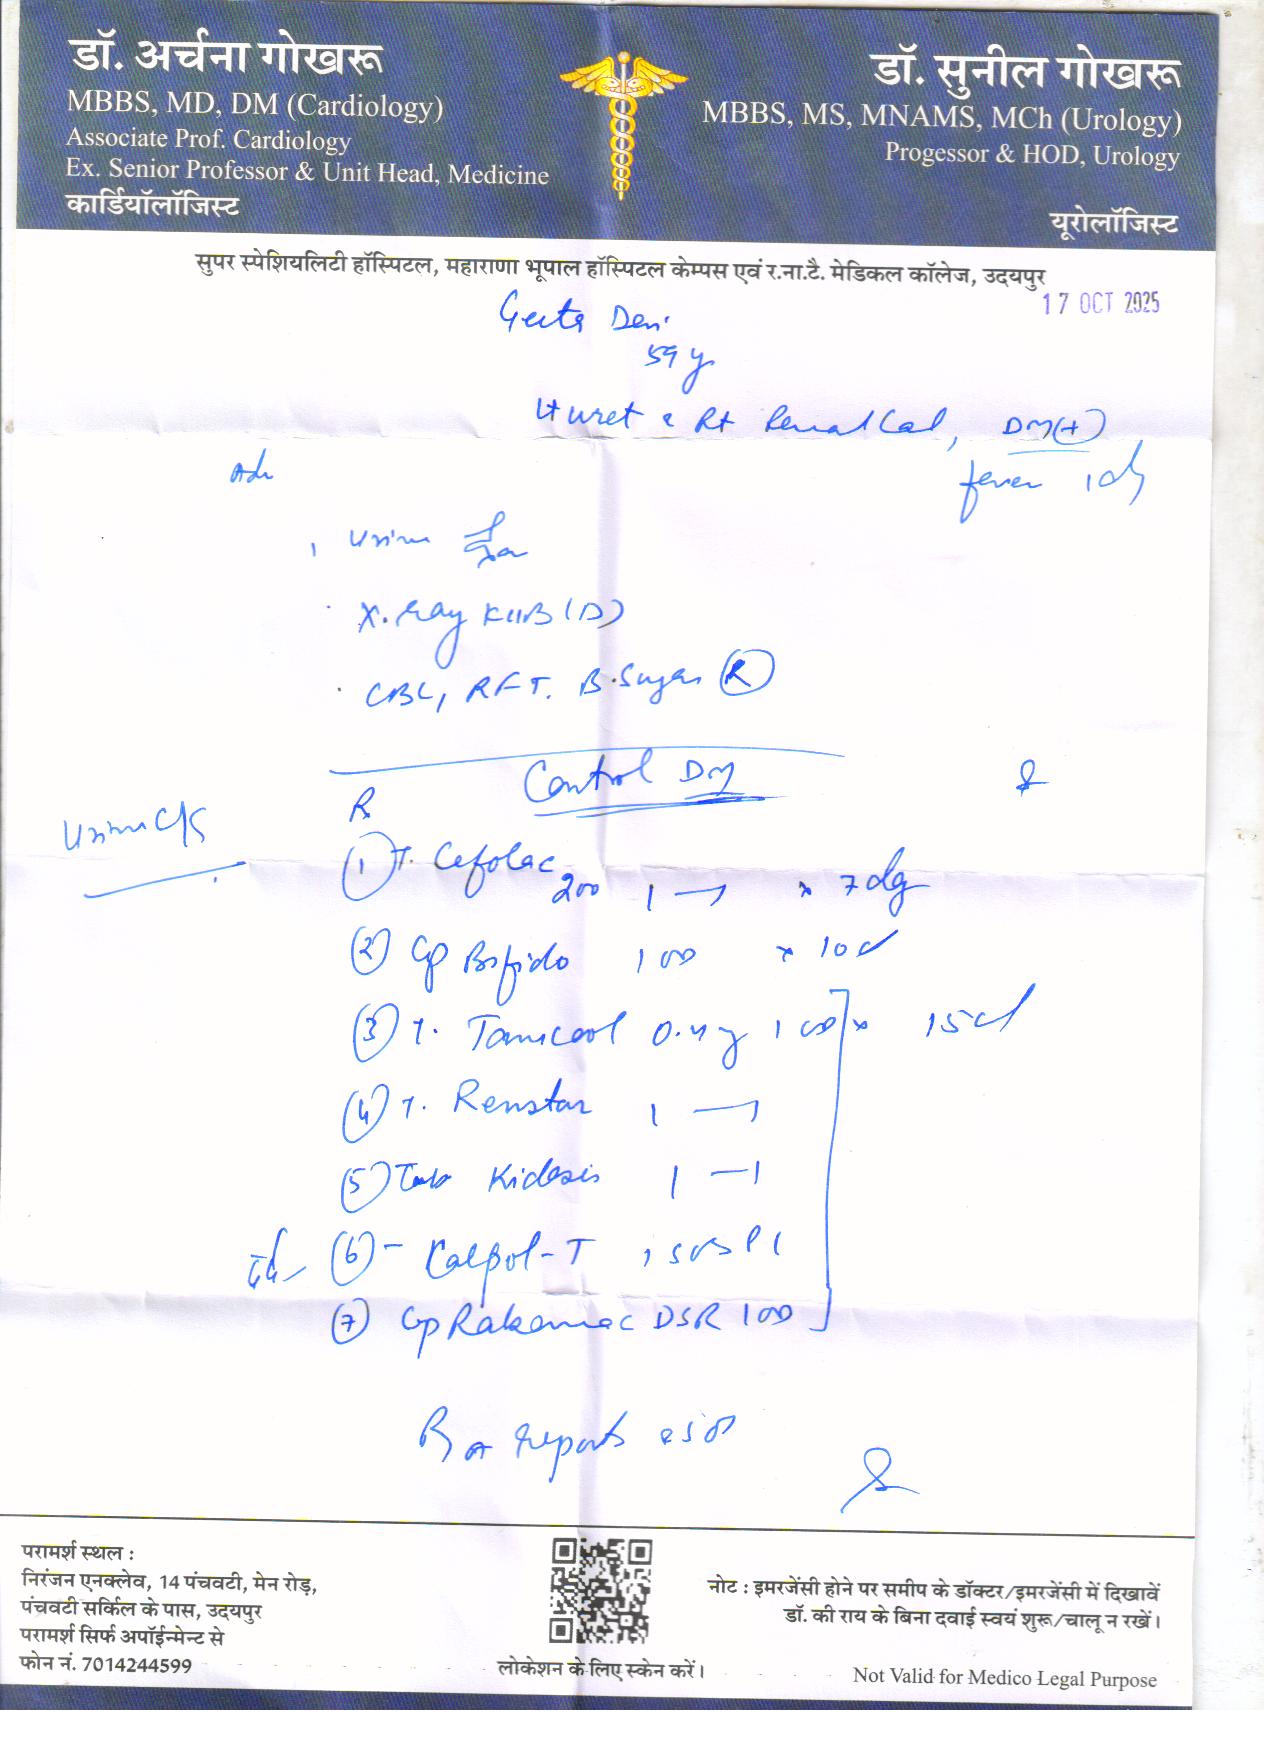 डॉ. अर्चना गोखरू
MBBS, MD, DM (Cardiology)
Associate Prof. Cardiology
Ex. Senior Professor & Unit Head, Medicine
कार्डियॉलॉजिस्ट
डॉ. सुनील गोखरू
MBBS, MS, MNAMS, MCh (Urology)
Progessor & HOD, Urology
यूरोलॉजिस्ट
सुपर स्पेशियलिटी हॉस्पिटल, महाराणा भूपाल हॉस्पिटल केम्पस एवं र.ना.टै. मेडिकल कॉलेज, उदयपुर
17 OCT 2025
Geeta Devi
59 y
Lt uret & Rt Renal Cal, DM(+)
fever 1d
Adv
Urine
X.Ray KUB (D)
CBC, RFT. B.Sugar (R)
Control DM
Urine C/S
R
(1) T. Cefolac 200 1 — 1 x 7dy
(2) Cp Bifido 1 OD x 10d
(3) T. Tamcool 0.4g 1 OD x 15d
(4) T. Renstar 1 — 1
(5) Tab Kidosis 1 — 1
(6) - Calpol-T 1 SOS
(7) Cp Rakemac DSR 1 OD
R reports
परामर्श स्थल :
निरंजन एनक्लेव, 14 पंचवटी, मेन रोड़,
पंचवटी सर्किल के पास, उदयपुर
परामर्श सिर्फ अपॉईन्मेन्ट से
फोन नं. 7014244599
लोकेशन के लिए स्केन करें।
नोट : इमरजेंसी होने पर समीप के डॉक्टर/इमरजेंसी में दिखावें
डॉ. की राय के बिना दवाई स्वयं शुरू/चालू न रखें।
Not Valid for Medico Legal Purpose